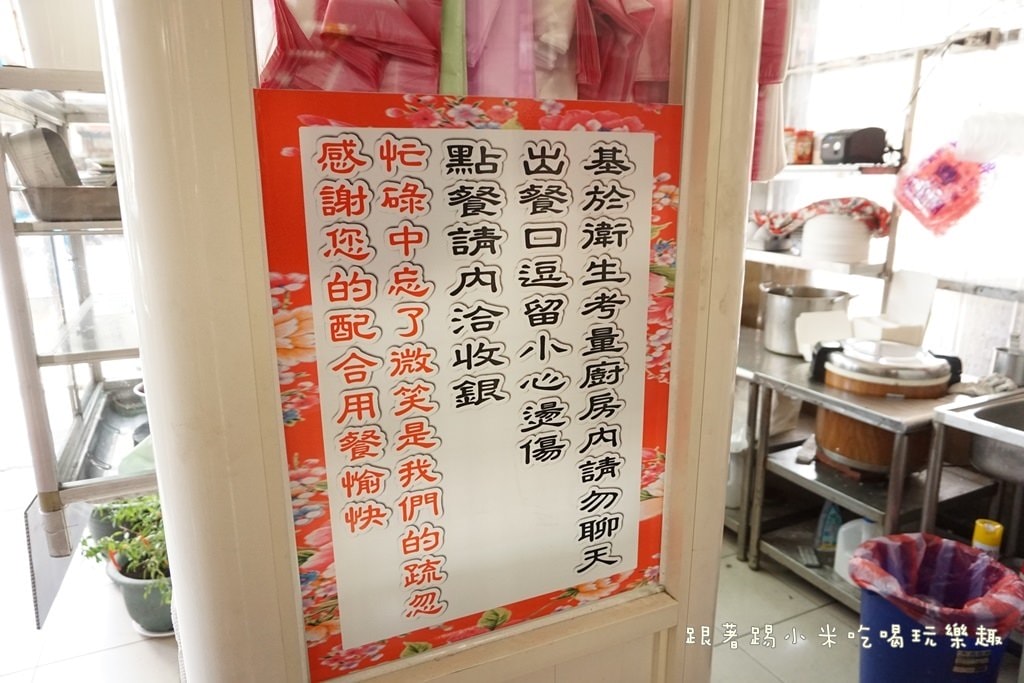 基於衛生考量廚房內請勿聊天
出餐口逗留小心燙傷
點餐請內洽收銀
忙碌中忘了微笑是我們的疏忽
感謝您的配合用餐愉快
跟著踢小米吃喝玩樂趣